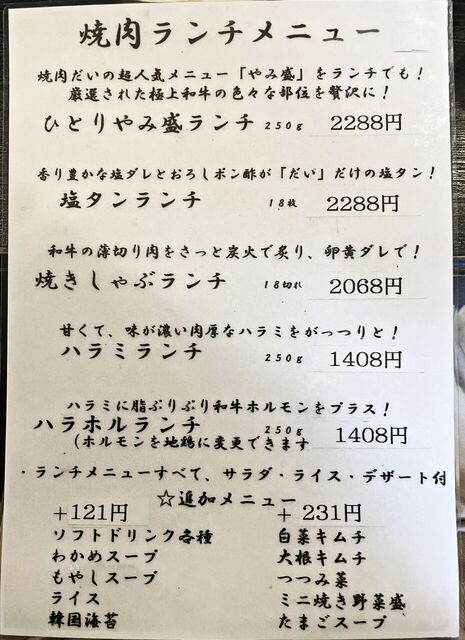 焼肉ランチメニュー
焼肉だいの超人気メニュー「やみ盛」をランチでも!
厳選された極上和牛の色々な部位を贅沢に!
ひとりやみ盛ランチ 250g 2288円
香り豊かな塩ダレとおろしポン酢が「だい」だけの塩タン!
塩タンランチ 18枚 2288円
和牛の薄切り肉をさっと炭火で炙り、卵黄ダレで!
焼きしゃぶランチ 18切れ 2068円
甘くて、味が濃い肉厚なハラミをがっつりと!
ハラミランチ 250g 1408円
ハラミに脂ぷりぷり和牛ホルモンをプラス!
ハラホルランチ 250g 1408円
(ホルモンを地鶏に変更できます
・ランチメニューすべて、サラダ・ライス・デザート付
☆追加メニュー
+121円 +231円
ソフトドリンク各種 白菜キムチ
わかめスープ 大根キムチ
もやしスープ つつみ菜
ライス ミニ焼き野菜盛
韓国海苔 たまごスープ